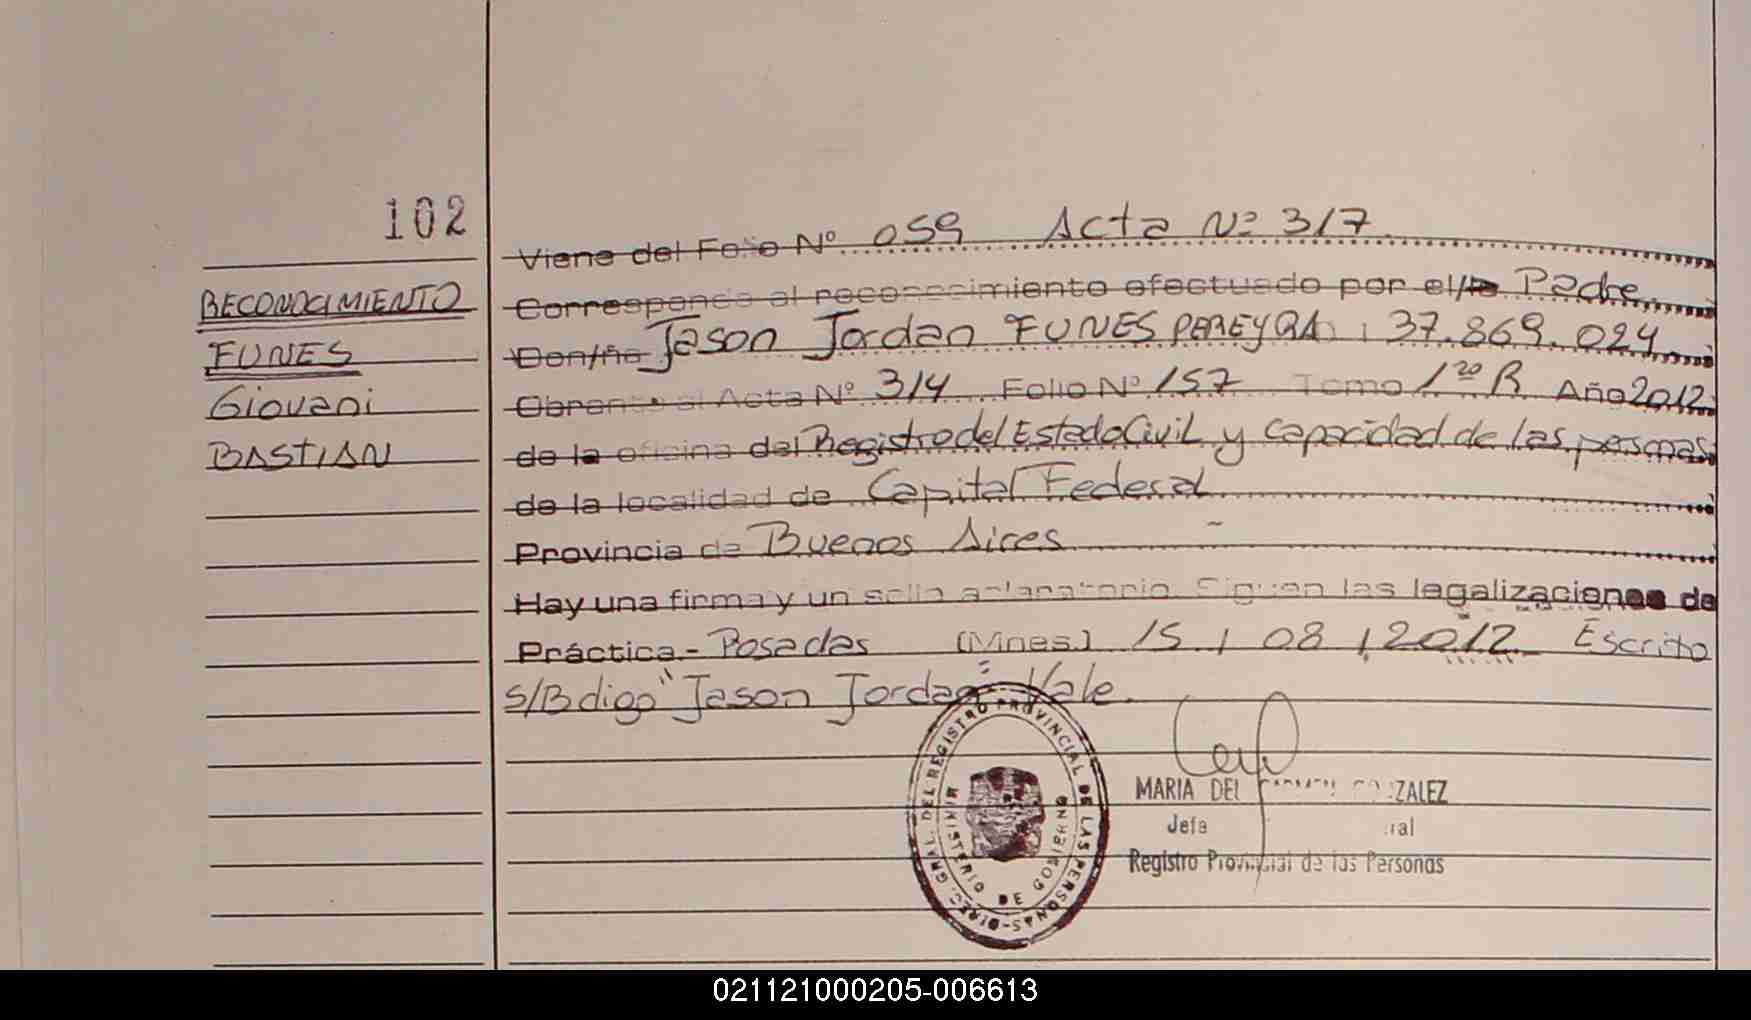 102
Viene del Folio Nº 059 Acta Nº 317
RECONOCIMIENTO
Corresponde al reconocimiento efectuado por el/la Padre
FUNES
Don/ña Jason Jordan FUNES PEREYRA 37.869.024
Giovani
Obrante al Acta Nº 314 Folio Nº 157 Tomo 1º R Año 2012
BASTIAN
de la oficina del Registro del Estado Civil y capacidad de las personas
de la localidad de Capital Federal
Provincia de Buenos Aires
Hay una firma y un sello aclaratorio. Siguen las legalizaciones de
Práctica.- Posadas (Mnes.) 15 / 08 / 2012 Escrito
S/B digo "Jason Jordan" Vale.
DIREC. GRAL. DEL REGISTRO PROVINCIAL DE LAS PERSONAS
MINISTERIO DE GOBIERNO
MARIA DEL CARMEN GONZALEZ
Jefe
Registro Provincial de las Personas
021121000205-006613